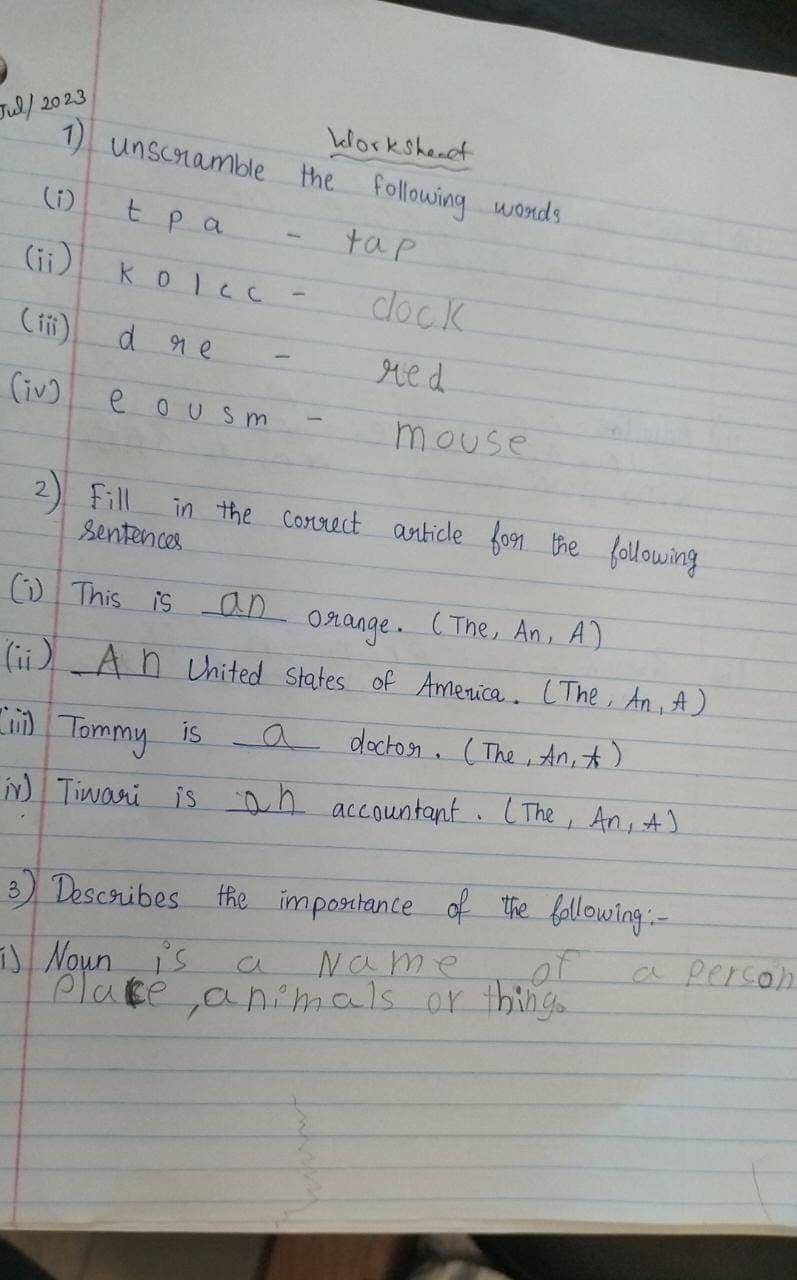 Jul/2023
Worksheet
1) unscramble the following words
(i) t p a - tap
(ii) k o l c c - clock
(iii) d r e - red
(iv) e o u s m - mouse
2) Fill in the correct article for the following
sentences
(i) This is an orange. (The, An, A)
(ii) An United States of America. (The, An, A)
(iii) Tommy is a doctor. (The, An, A)
iv) Tiwari is an accountant. (The, An, A)
3) Describes the importance of the following:-
i) Noun is a Name of a person
place, animals or thing.